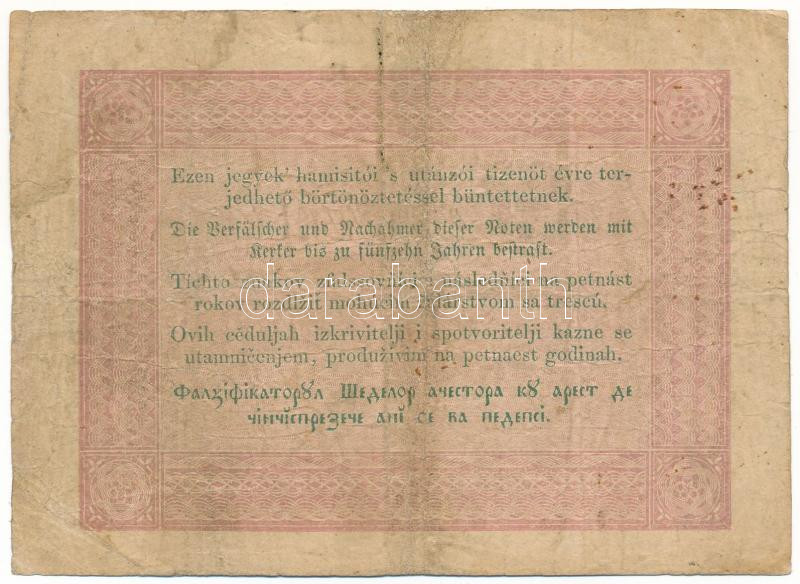 Ezen jegyek' hamisitói 's utánzói tizenöt évre ter-
jedhető börtönöztetéssel büntettetnek.
Die Verfälscher und Nachahmer dieser Noten werden mit
Kerker bis zu fünfzehn Jahren bestraft.
Tíchto značkov na petnást
rokov rozdlžiť sa trescú.
Ovih cěduljah izkrivitelji i spotvoritelji kazne se
utamničenjem, produživim na petnaest godinah.
Фалзіфікаторꙋл Шеделор ачестора кꙋ арест де
чінчіспрезече ані се ва педепсі.
darabanth